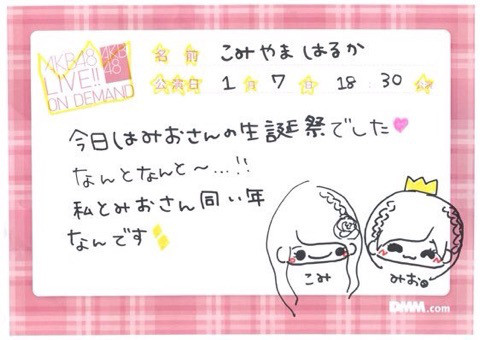 AKB48
LIVE!!
ON DEMAND
AKB
48
名前 こみやま はるか
公演日 1月7日 18:30公演
今日はみおさんの生誕祭でした♥
なんとなんと〜...!!
私とみおさん同い年
なんです
こみ
みお
DMM.com